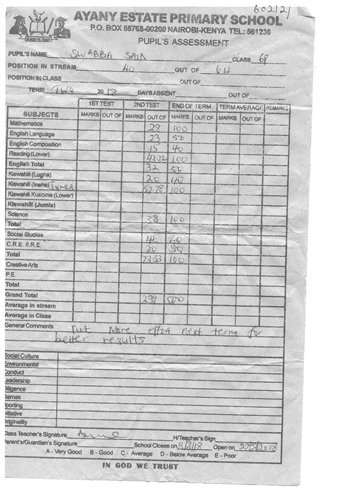 602121
AYANY ESTATE PRIMARY SCHOOL
P.O. BOX 55763-00200 NAIROBI-KENYA TEL: 561236
PUPIL'S ASSESSMENT
PUPIL'S NAME SWABBA SAID CLASS 6B
POSITION IN STREAM 40 OUT OF 64
POSITION IN CLASS OUT OF
TERM 20 DAYS ABSENT OUT OF
1ST TEST 2ND TEST END OF TERM TERM AVERAGE REMARKS
SUBJECTS MARKS OUT OF MARKS OUT OF MARKS OUT OF MARKS OUT OF
Mathematics 28 100
English Language 23 50
English Composition 15 40
Reading (Lower) 100
English Total 32 50
Kiswahili (Lugha) 20 40
Kiswahili (Insha) INSHA 57.78 100
Kiswahili Kusoma (Lower)
Kiswahili (Jumla)
Science
Total 38 100
Social Studies
C.R.E. /I.R.E. 20 30
Total 73.33 100
Creative Arts
P.E
Total
Grand Total 239 500
Average in stream
Average in Class
General Comments Put More effort next term for
better results
Social Culture
Environmental
Conduct
Leadership
Diligence
Games
Sporting
Initiative
Originality
Class Teacher's Signature H/Teacher's Sign
Parent's/Guardian's Signature School Closes on Open on
A - Very Good B - Good C - Average D - Below Average E - Poor
IN GOD WE TRUST